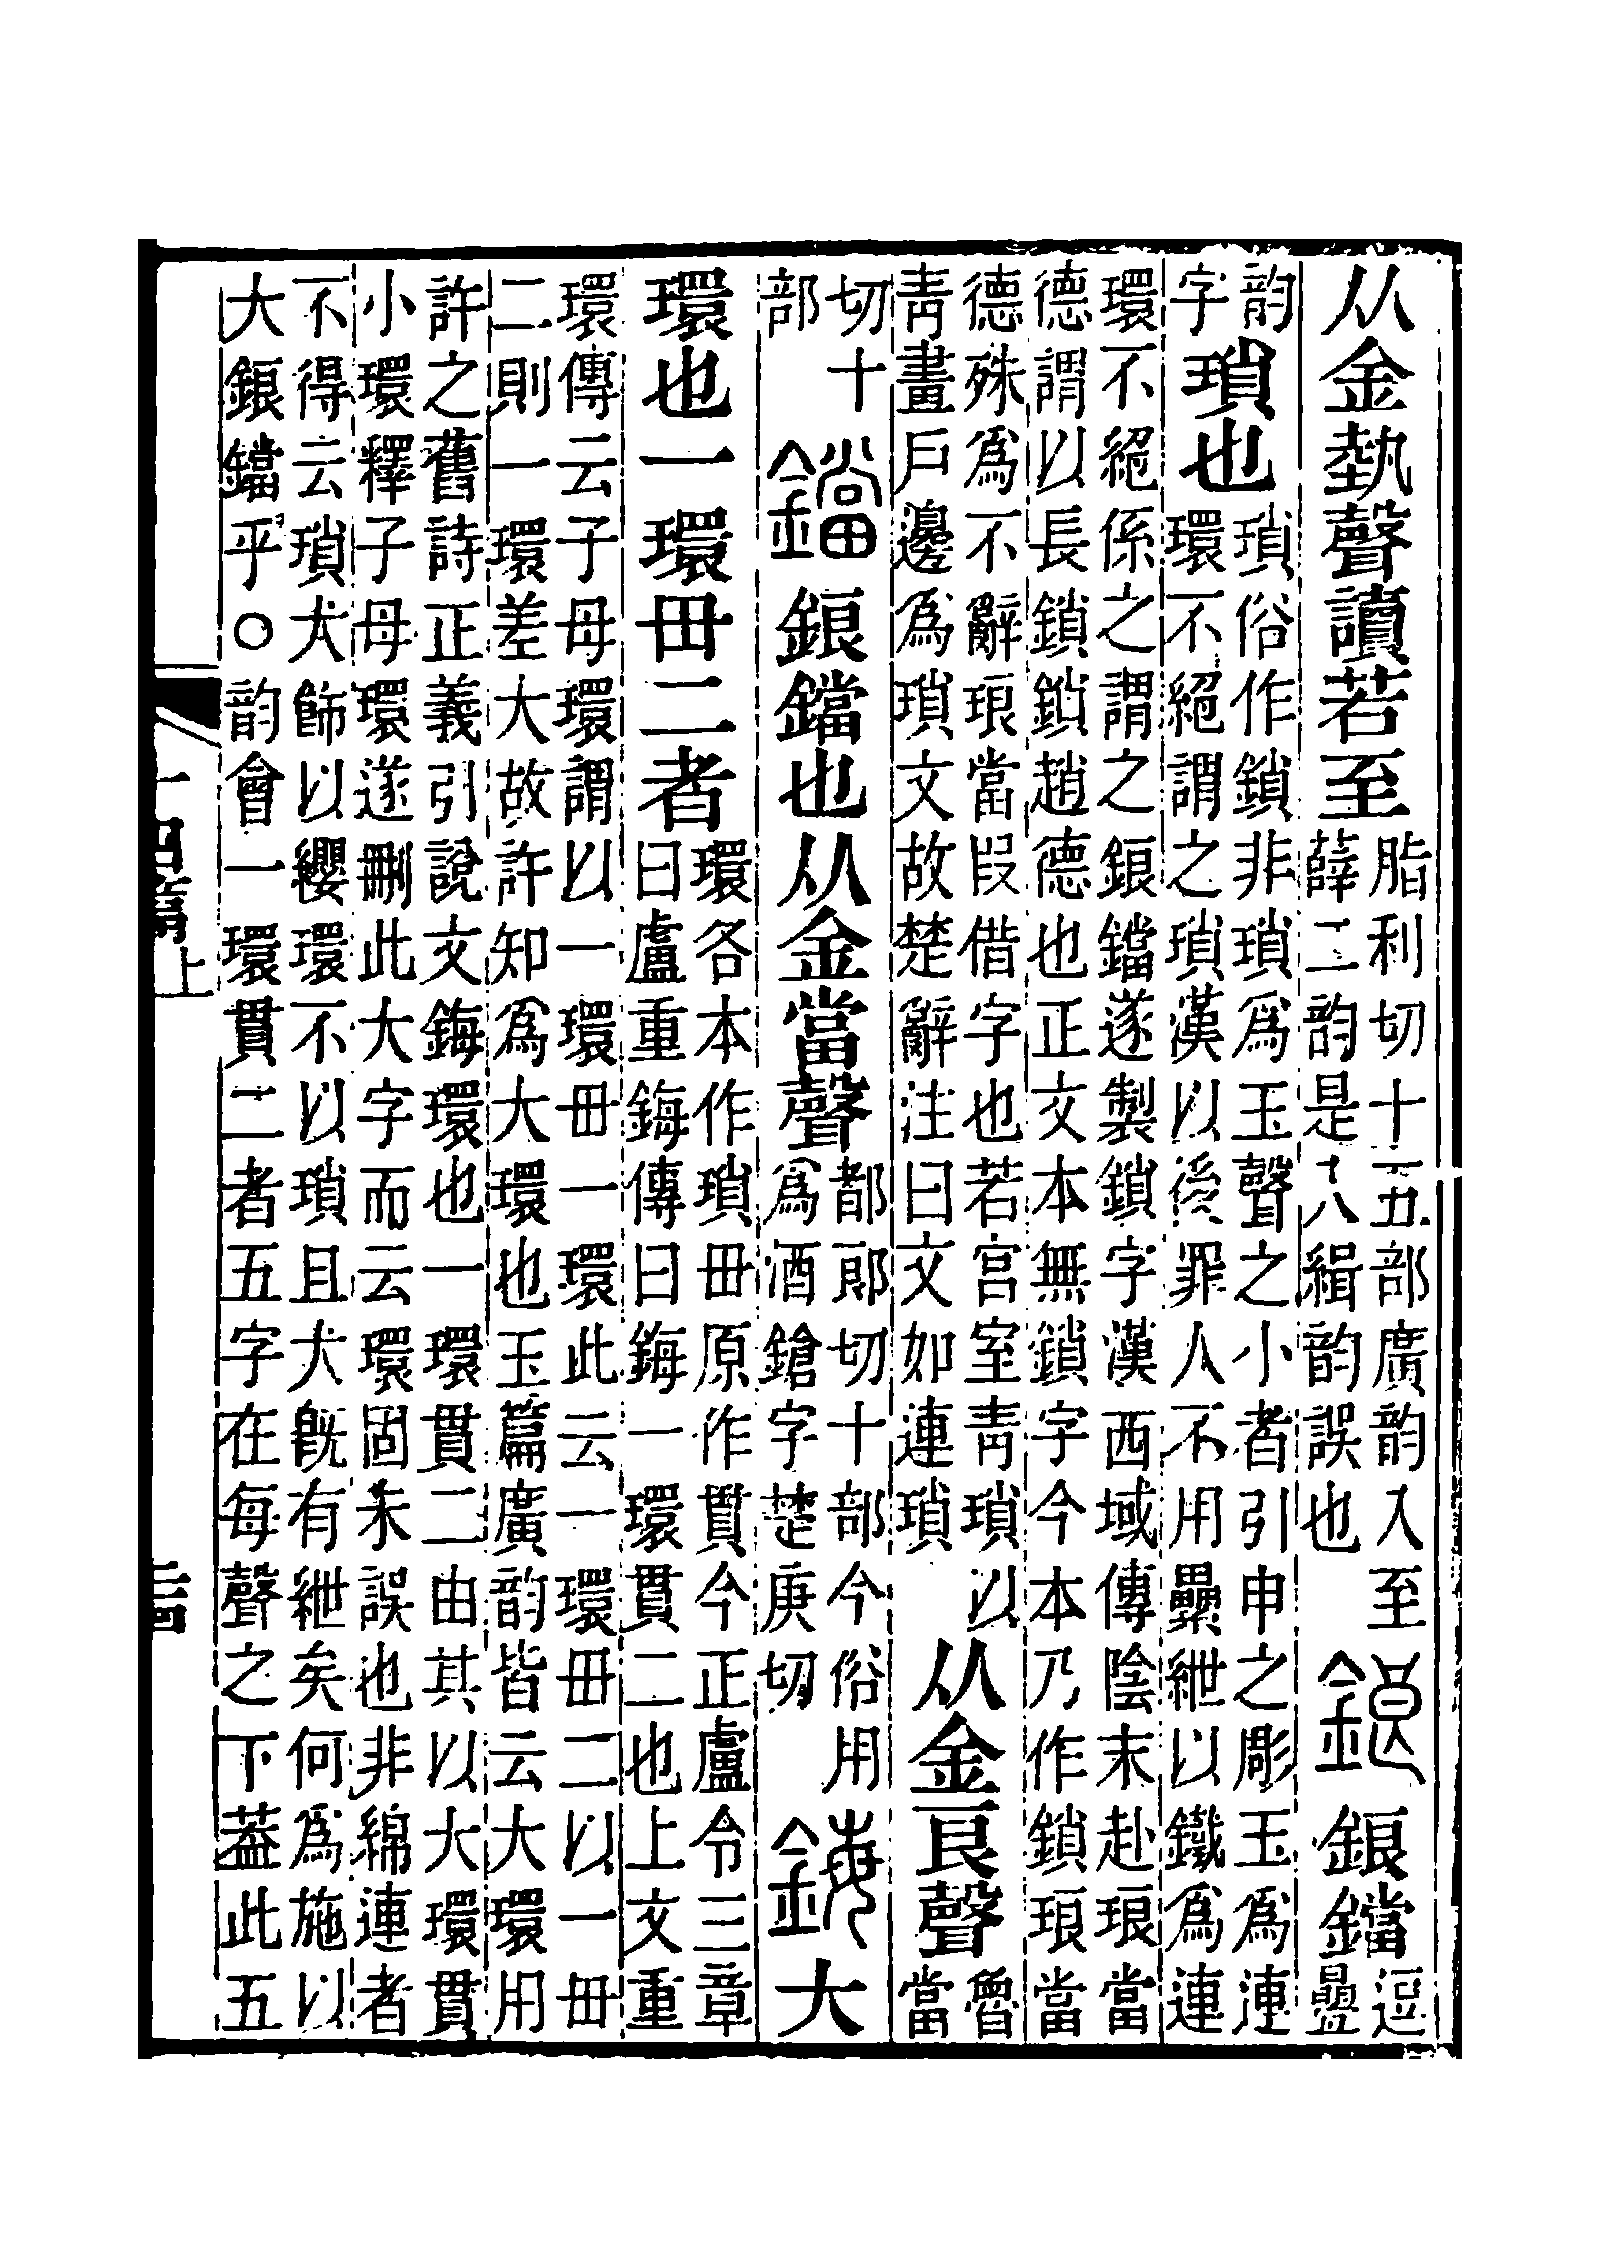 从金埶聲讀若至脂利切十五部廣韵入至薛二韵是入緝韵誤也鋃鋃鐺逗曡
韵字瑣也瑣俗作鎖非瑣爲玉聲之小者引申之彫玉爲連環不絕謂之瑣漢以後罪人不用纍紲以鐵爲連
環不絕係之謂之鋃鐺遂製鎖字漢西域傳陰末赴琅當德謂以長鎖鎖趙德也正文本無鎖字今本乃作鎖琅當
德殊爲不辭琅當叚借字也若宮室青瑣以青畫戶邊爲瑣文故楚辭注曰文如連瑣从金良聲魯當
切十部鐺鋃鐺也从金當聲都郎切十部今俗用爲酒鎗字楚庚切鋂大
環也一環毌二者環各本作瑣毌原作貫今正盧令三章曰盧重鋂傳曰鋂一環貫二也上文重
環傳云子母環謂以一環毌一環此云一環毌二以一毌二則一環差大故許知爲大環也玉篇廣韵皆云大環用
許之舊詩正義引說文鋂環也一環貫二由其以大環貫小環釋子母環遂刪此大字而云環固未誤也非綿連者
不得云瑣犬飾以纓環不以瑣且犬旣有紲矣何爲施以大鋃鐺乎○韵會一環貫二者五字在每聲之下葢此五
十四篇上
二十四